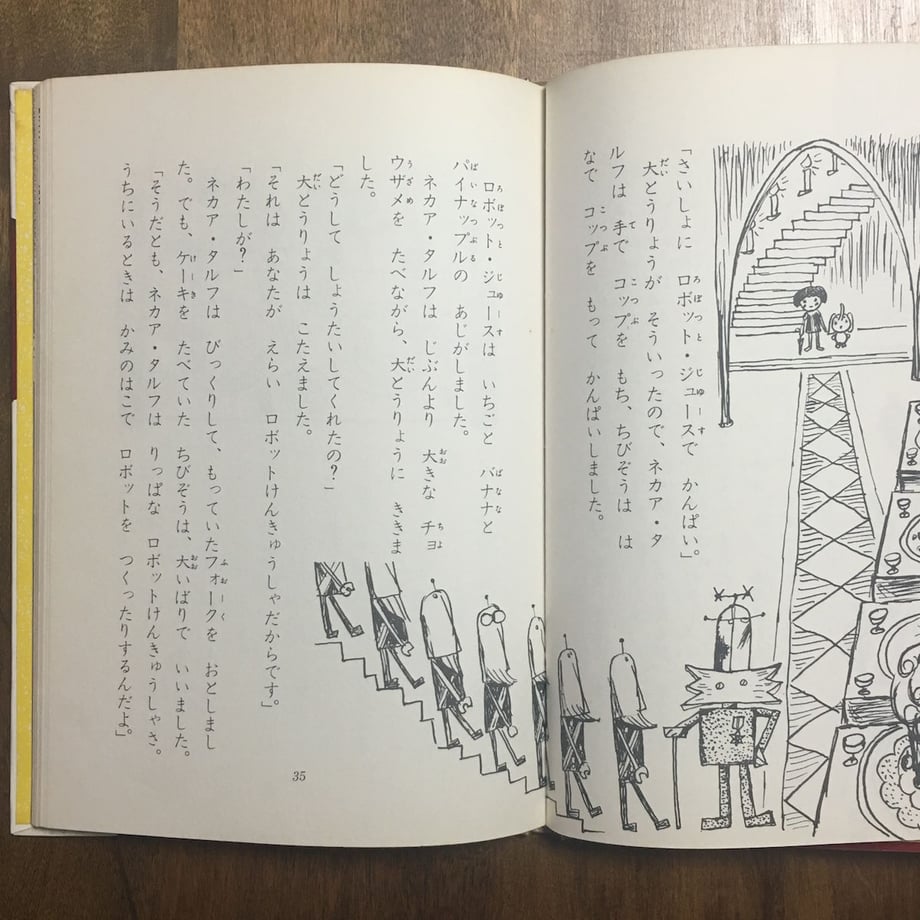 「さいしょに ロボット・ジュースで かんぱい。」
大とうりょうが そういったので、ネカア・タ
ルフは 手で コップを もち、ちびぞうは は
なで コップを もって かんぱいしました。
ロボット・ジュースは いちごと バナナと
パイナップルの あじがしました。
ネカア・タルフは じぶんより 大きな チョ
ウザメを たべながら、大とうりょうに ききま
した。
「どうして しょうたいしてくれたの？」
大とうりょうは こたえました。
「それは あなたが えらい ロボットけんきゅうしゃだからです。」
「わたしが？」
ネカア・タルフは びっくりして、もっていたフォークを おとしまし
た。でも、ケーキを たべていた ちびぞうは、大いばりで いいました。
「そうだとも、ネカア・タルフは りっぱな ロボットけんきゅうしゃさ。
うちにいるときは かみのはこで ロボットを つくったりするんだよ。」
35